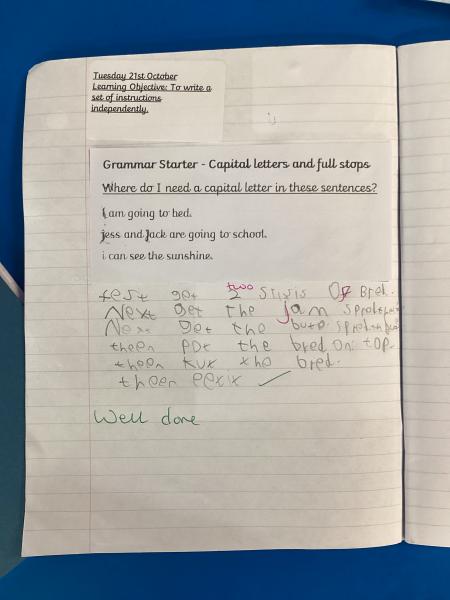 Tuesday 21st October
Learning Objective: To write a
set of instructions
independently.
Grammar Starter - Capital letters and full stops
Where do I need a capital letter in these sentences?
I am going to bed.
jess and Jack are going to school.
i can see the sunshine.
two
fest get 2 Of Bred.
Next get the jam
Next get the
theen pot the bred on top.
theen kux the bred.
theen
Well done